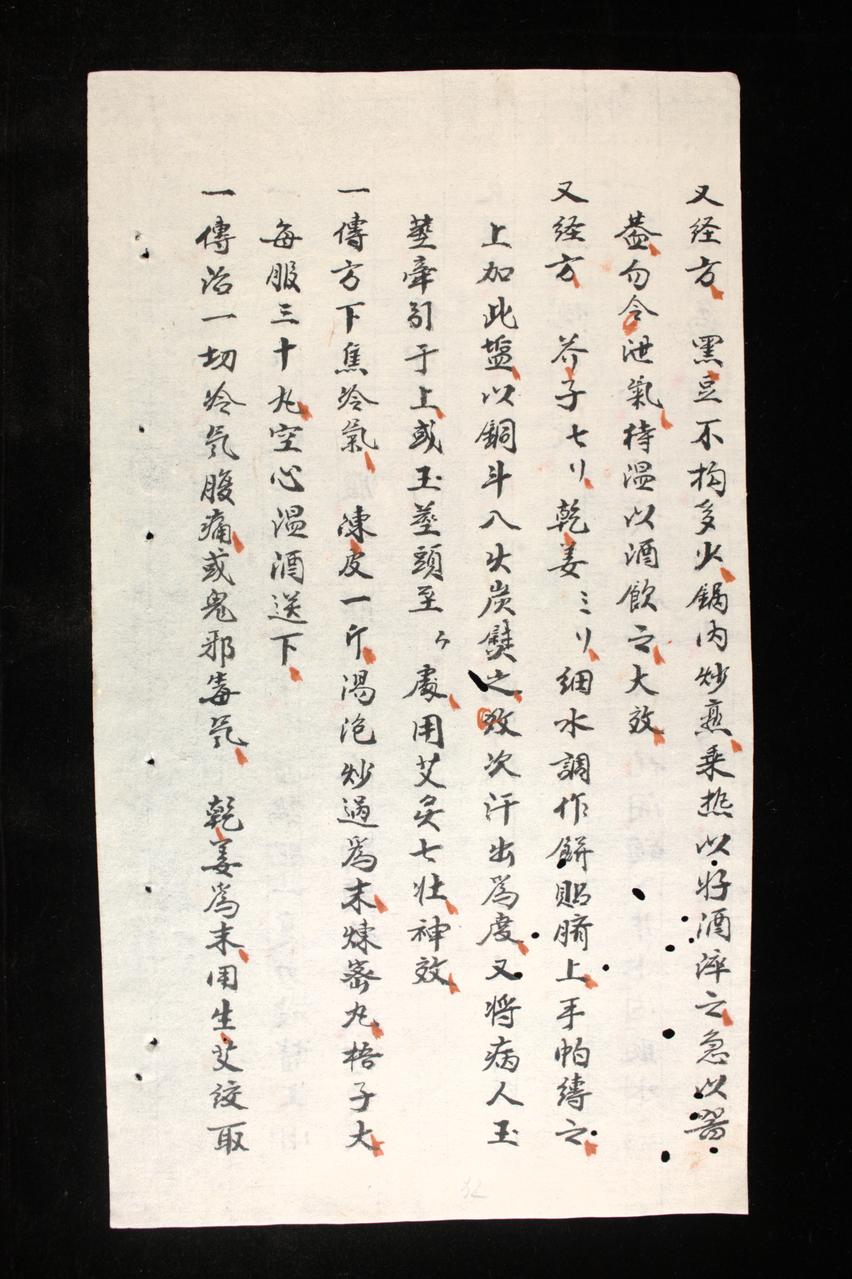 又经方 黑豆不拘多少鍋内炒熏乘热以好酒淬之急以器
盖勿令泄氣待温以酒飲之大效
又经方 芥子七刂乾姜三刂細水調作餅貼臍上手帕縛之
上加此塩以銅斗八火炭熨之效次汗出爲度又將病人玉
莖牽引于上或玉莖頭至処用艾灸七壮神效
一傳方下焦冷氣 陳皮一斤湯泡炒過爲末煉蜜丸梧子大
每服三十丸空心温酒送下
一傳治一切冷氕腹痛或鬼邪毒氕 乾姜爲末用生艾絞取
32